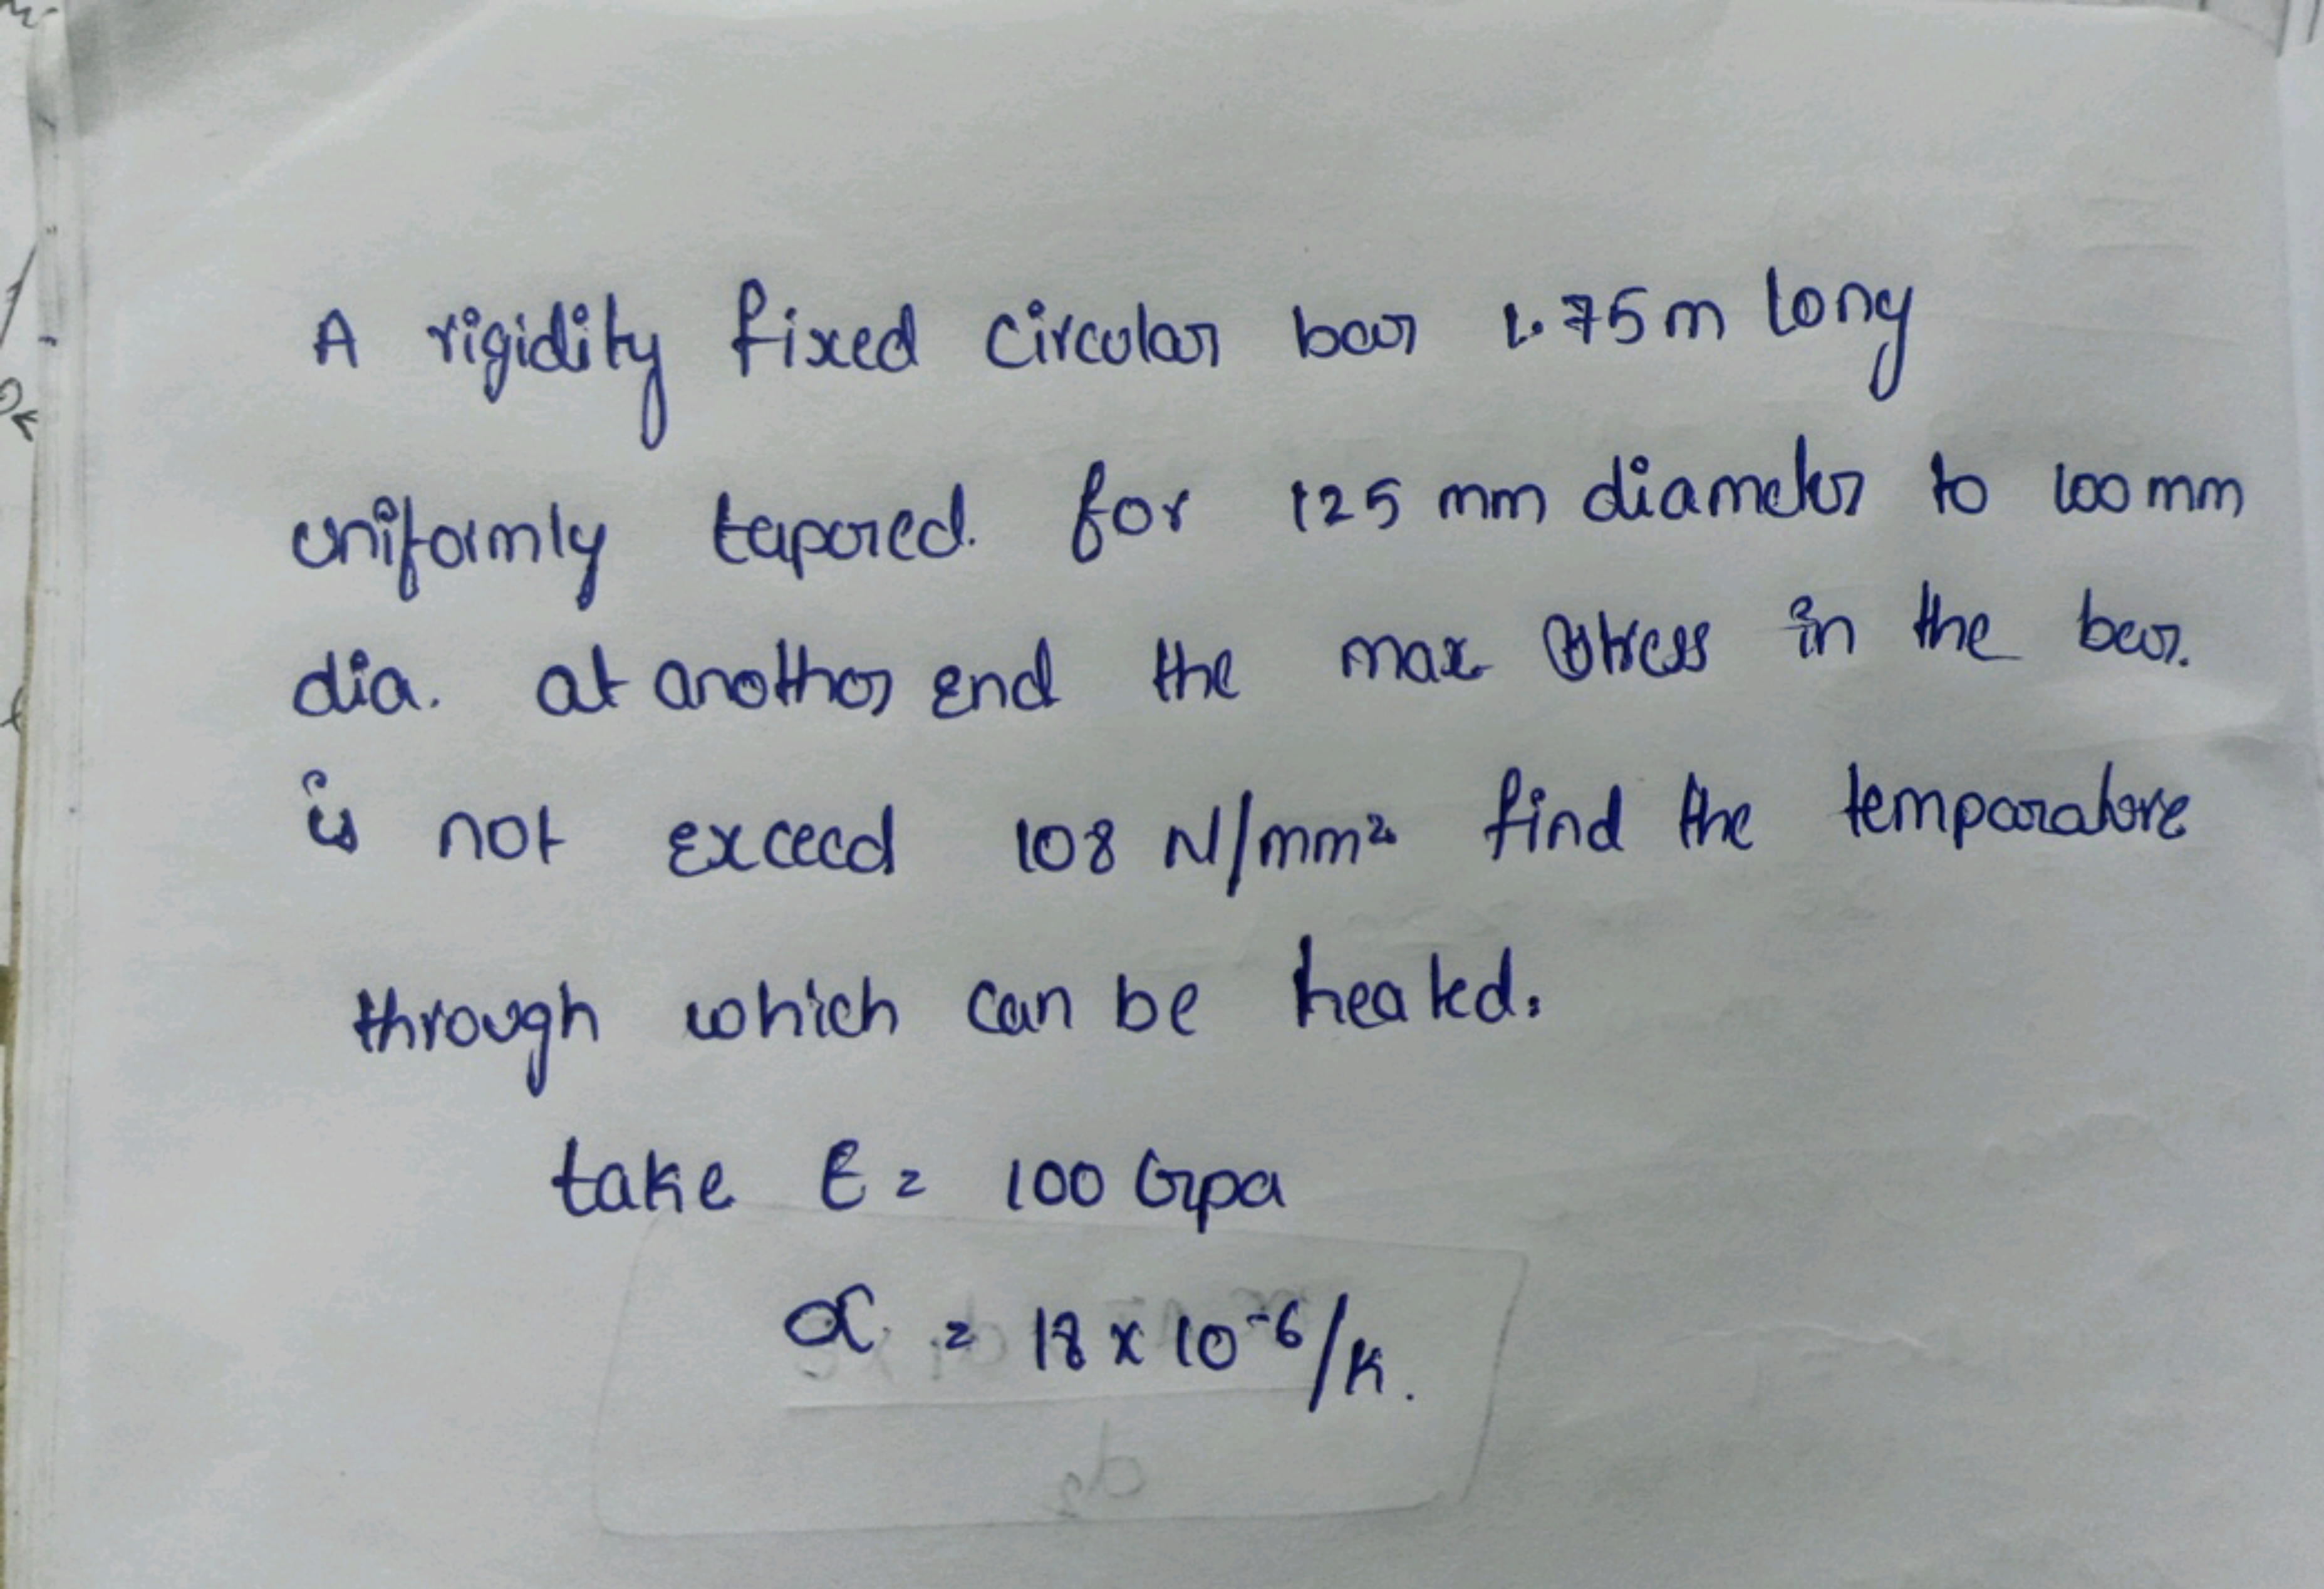 A rigidity fixed circular bar 1.75m long
uniformly tapered. for 125 mm diameter to 100mm
dia. at another end the max stress in the bar.
is not exceed 108 N/mm² find the temparature
through which can be heated.
take E = 100 Gpa
α = 18 x 10⁻⁶/K.